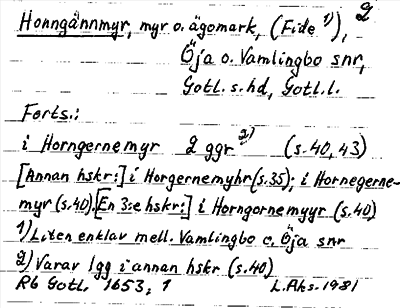 2
Honngännmyr, myr o. ägomark, (Fide 1)),
Öja o. Vamlingbo snr,
Gotl. s. hd, Gotl. l.
Forts.:
i Horngernemyr 2 ggr 2) (s. 40, 43)
[Annan hskr:] i Horgernemyhr (s. 35); i Hornegerne-
myr (s. 40). [En 3:e hskr:] i Horngornemyyr (s. 40)
1) Liten enklav mell. Vamlingbo o. Öja snr
2) Varav 1 gg i annan hskr (s. 40)
R6 Gotl. 1653; 1 L. Ahs. 1981